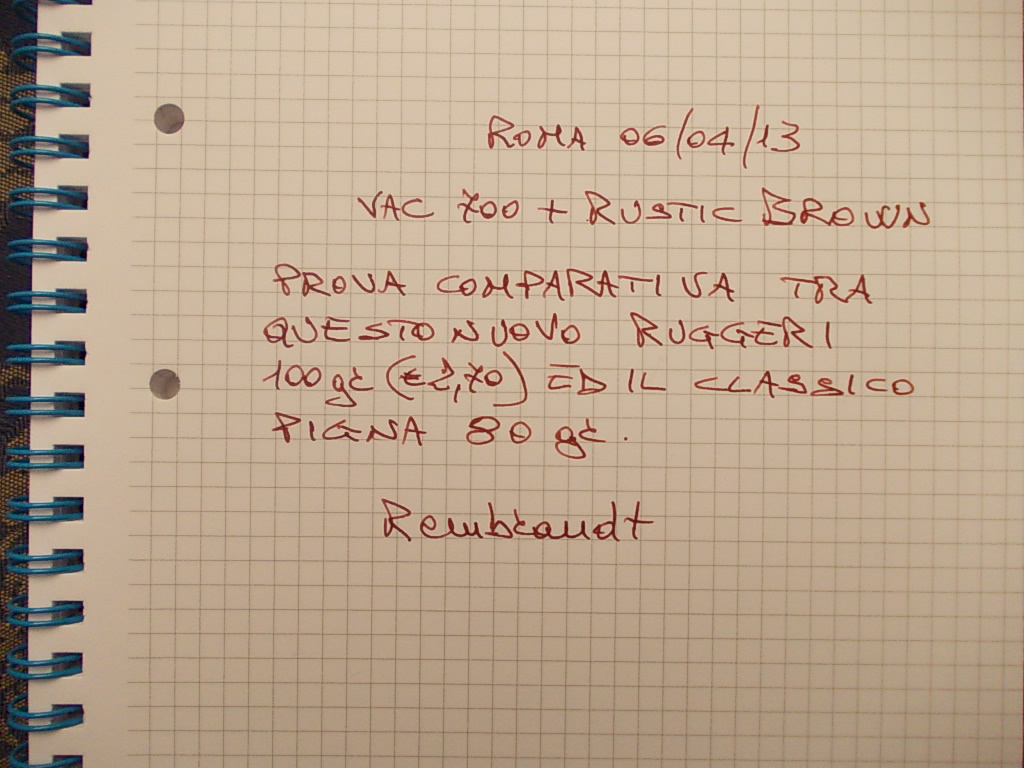 ROMA 06/04/13
VAC 700 + RUSTIC BROWN
PROVA COMPARATIVA TRA
QUESTO NUOVO RUGGERI
100 gr (€ 2,70) ED IL CLASSICO
PIGNA 80 gr.
Rembrandt